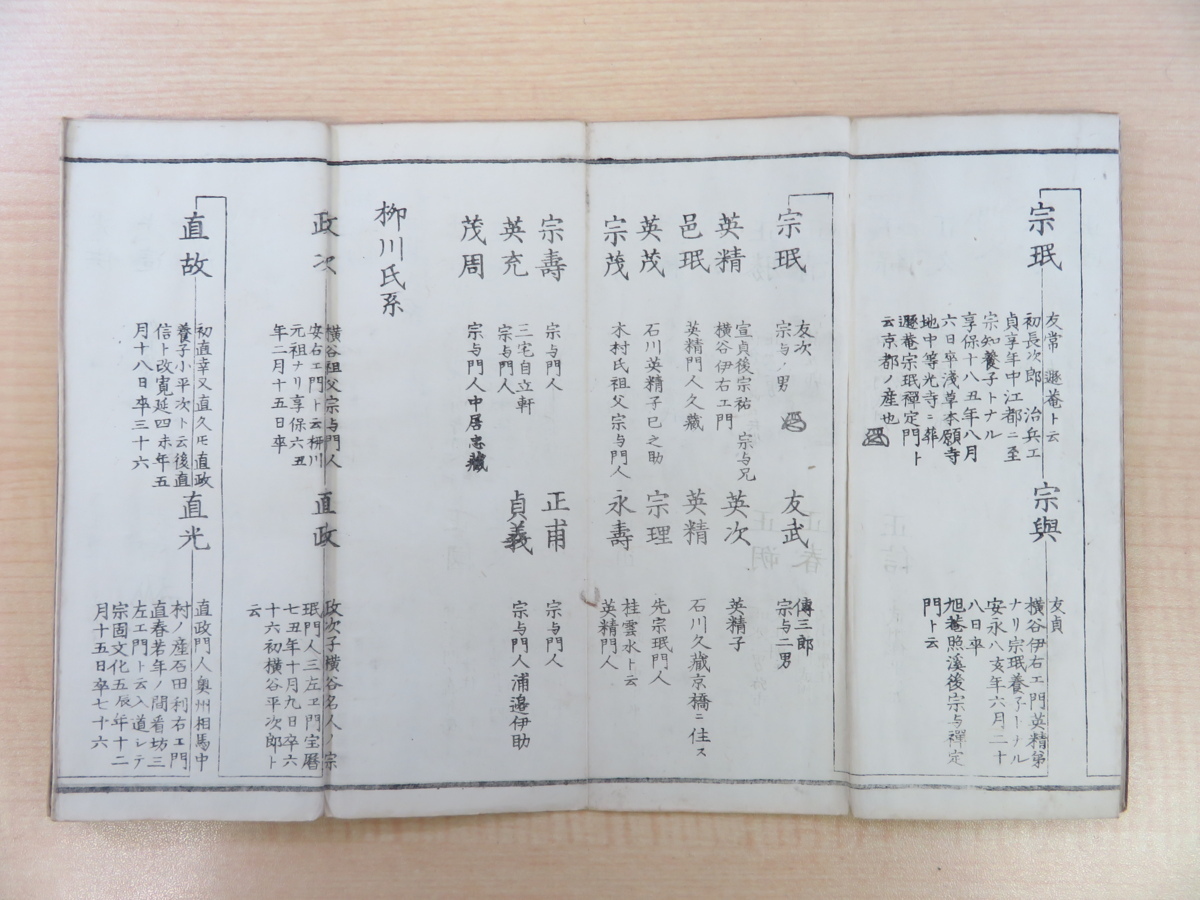 宗珉
友常 遯菴ト云
初長次郎 治兵エ
貞享年中江都ニ至
宗知養子トナル
享保十八丑年八月
六日卒淺草本願寺
地中等光寺ニ葬
遯菴宗珉禅定門ト
云京都ノ産也
宗與
友貞
横谷伊右エ門英精第
ナリ宗珉養子トナル
安永八亥年六月二十
八日卒
旭菴照溪後宗与禅定
門ト云
宗珉
友次
宗与ノ男
友武
傳三郎
宗与二男
英精
宣貞後宗祐 宗与兄
横谷伊右エ門
英次
英精子
邑珉
英精門人久藏
英精
石川久藏京橋ニ住ス
英茂
石川英精子巳之助
宗理
先宗珉門人
宗茂
本村氏祖父宗与門人
永壽
桂雲水ト云
英精門人
宗壽
宗与門人
正甫
宗与門人
英充
三宅自立軒
宗与門人
貞義
宗与門人浦邉伊助
茂周
宗与門人中居忠藏
柳川氏系
政次
横谷祖父宗与門人
安右エ門ト云柳川
元祖ナリ享保六丑
年二月十五日卒
直政
政次子横谷名人ノ宗
珉門人三左エ門宝暦
七丑年十月九日卒六
十六初横谷平次郎ト
云
直故
初直幸又直久ᅟ直政
養子小平次ト云後直
信ト改寛延四未年五
月十八日卒三十六
直光
直政門人奥州相馬中
村ノ産石田利右エ門
直春若年ノ間看坊三
左エ門ト云入道シテ
宗固文化五辰年十二
月十五日卒七十六